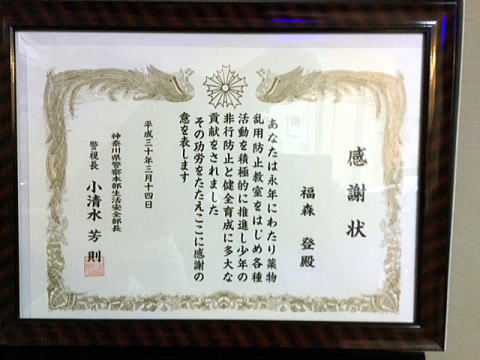 感謝状
福森 登殿
あなたは永年にわたり薬物
乱用防止教室をはじめ各種
活動を積極的に推進し少年の
非行防止と健全育成に多大な
貢献をされました
その功労をたたえここに感謝の
意を表します
平成三十年三月十四日
神奈川県警察本部生活安全部長
警視長 小清水 芳則